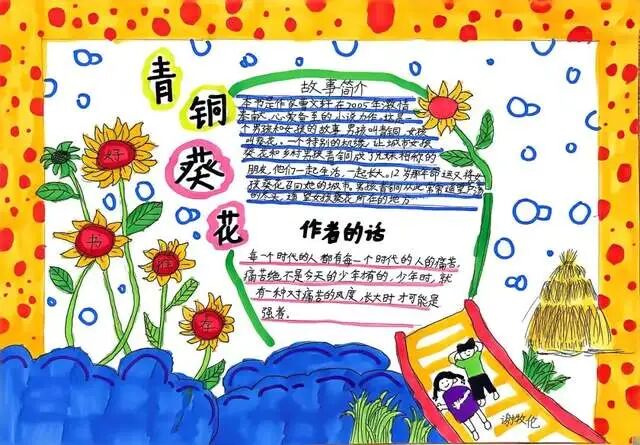 青铜葵花
好
书
福
在
故事简介
本书是作家曹文轩在2005年激情
奉献、心、
个男孩和女孩的故事 男孩叫青铜 女孩
叫葵花。一个特别的机缘,让城市女孩
葵花和乡村男孩青铜成了兄妹相称的
朋友,他们一起生活,一起长大。12岁那年命运又将女
孩葵花召回她的城市。男孩青铜从此常常遥望芦荡
的尽头,遥望女孩葵花所在的地方
作者的话
每一个时代的人,都有每一个时代的人的痛苦,
痛苦绝不是今天的少年才有的,少年时,就
有一种对痛苦的风度,长大时才可能是
强者.
谢